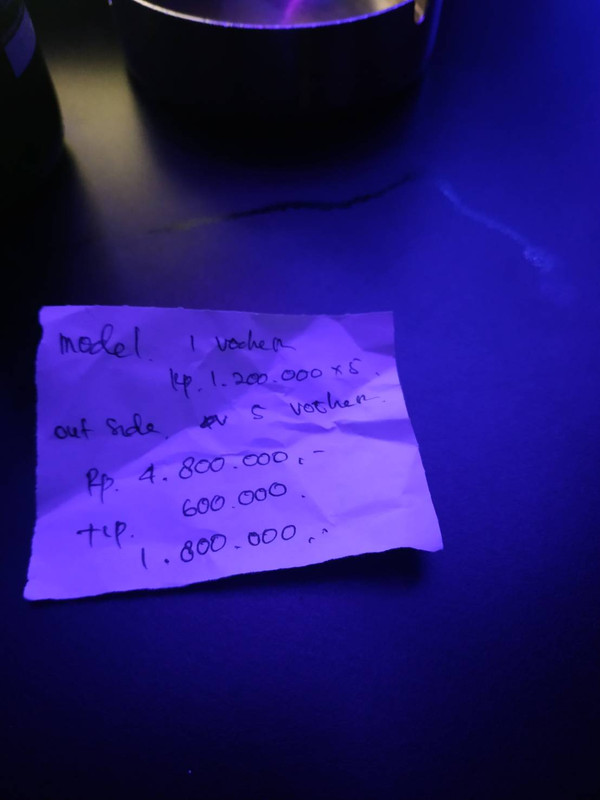 model. 1 vocher
Rp. 1.200.000 x 5.
out side. 5 vocher.
Rp. 4.800.000,-
600.000.
tip.
1.800.000,-